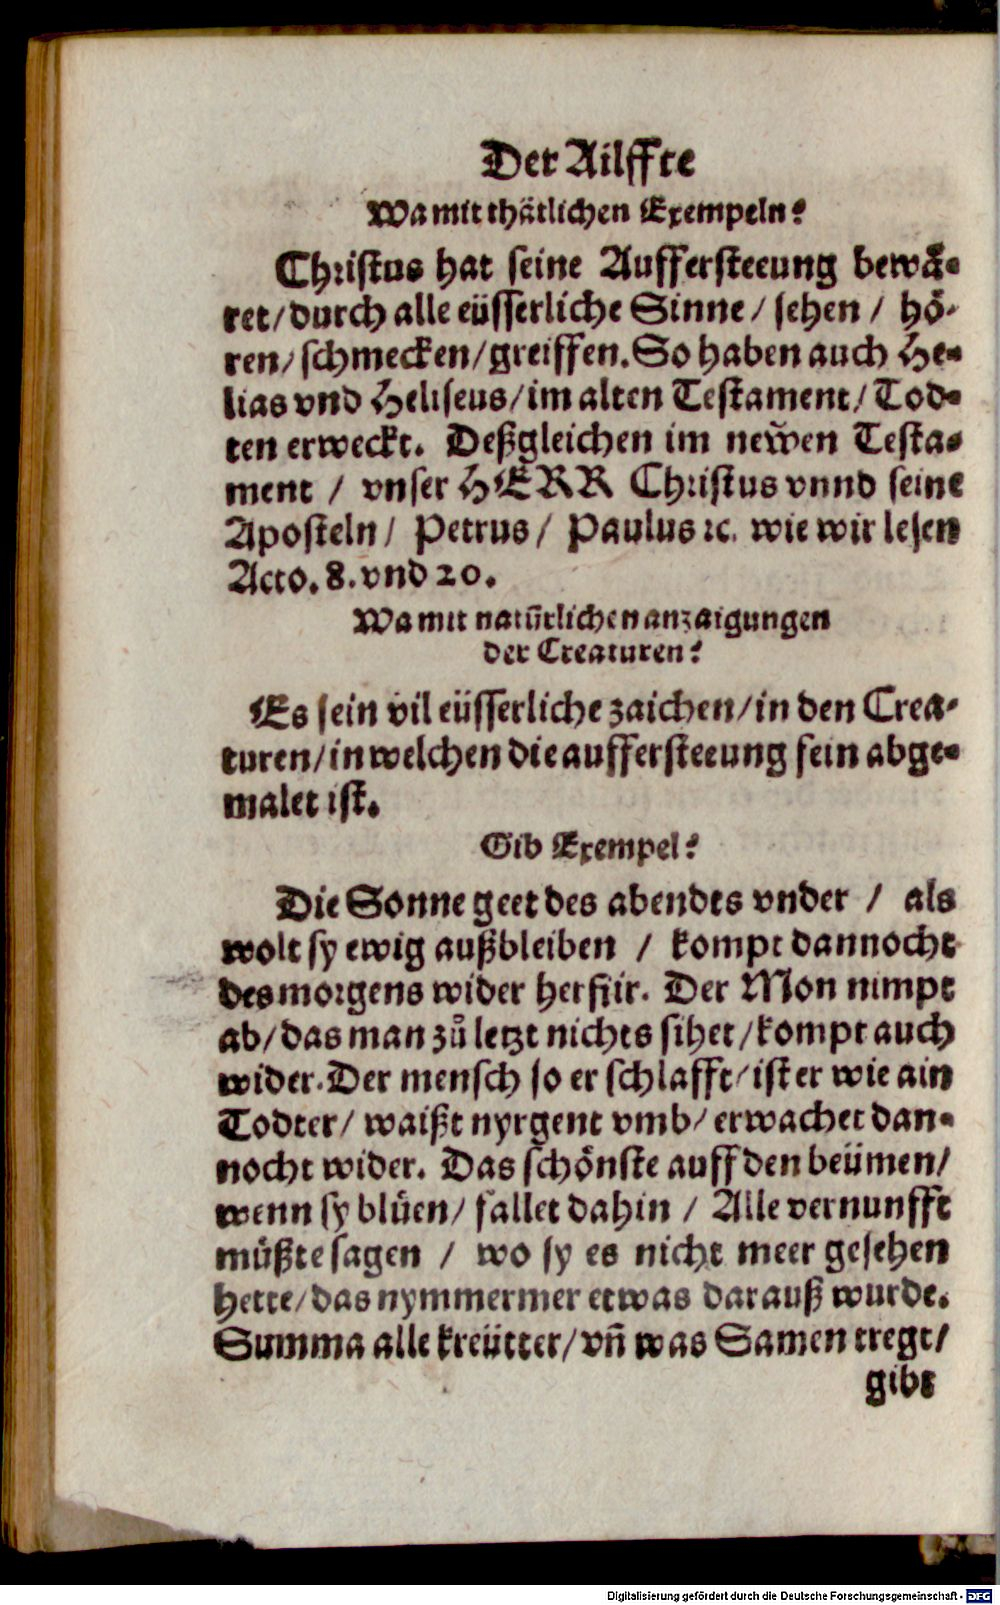 Der Ailffte
Wa mit thätlichen Exempeln?
Christus hat seine Auffersteeung bewä-
ret/durch alle eüsserliche Sinne/ sehen / hö-
ren/schmecken/greiffen. So haben auch He-
lias vnd Heliseus/im alten Testament/ Tod-
ten erweckt. Deßgleichen im newen Testa-
ment / vnser HERR Christus vnnd seine
Aposteln/ Petrus/ Paulus ꝛc. wie wir lesen
Acto. 8. vnd 20.
Wa mit natürlichen anzaigungen
der Creaturen?
Es sein vil eüsserliche zaichen/in den Crea-
turen/in welchen die auffersteeung fein abge-
malet ist.
Gib Exempel?
Die Sonne geet des abendts vnder / als
wolt sy ewig außbleiben / kompt dannocht
des morgens wider herfür. Der Mon nimpt
ab/das man zů letzt nichts sihet/kompt auch
wider. Der mensch so er schlafft/ist er wie ain
Todter/ waißt nyrgent vmb/ erwachet dan-
nocht wider. Das schönste auff den beümen/
wenn sy blüen/ fallet dahin / Alle vernunfft
müßte sagen / wo sy es nicht meer gesehen
hette/das nymmermer etwas darauß wurde.
Summa alle kreütter/vñ was Samen tregt/
gibt
Digitalisierung gefördert durch die Deutsche Forschungsgemeinschaft - DFG